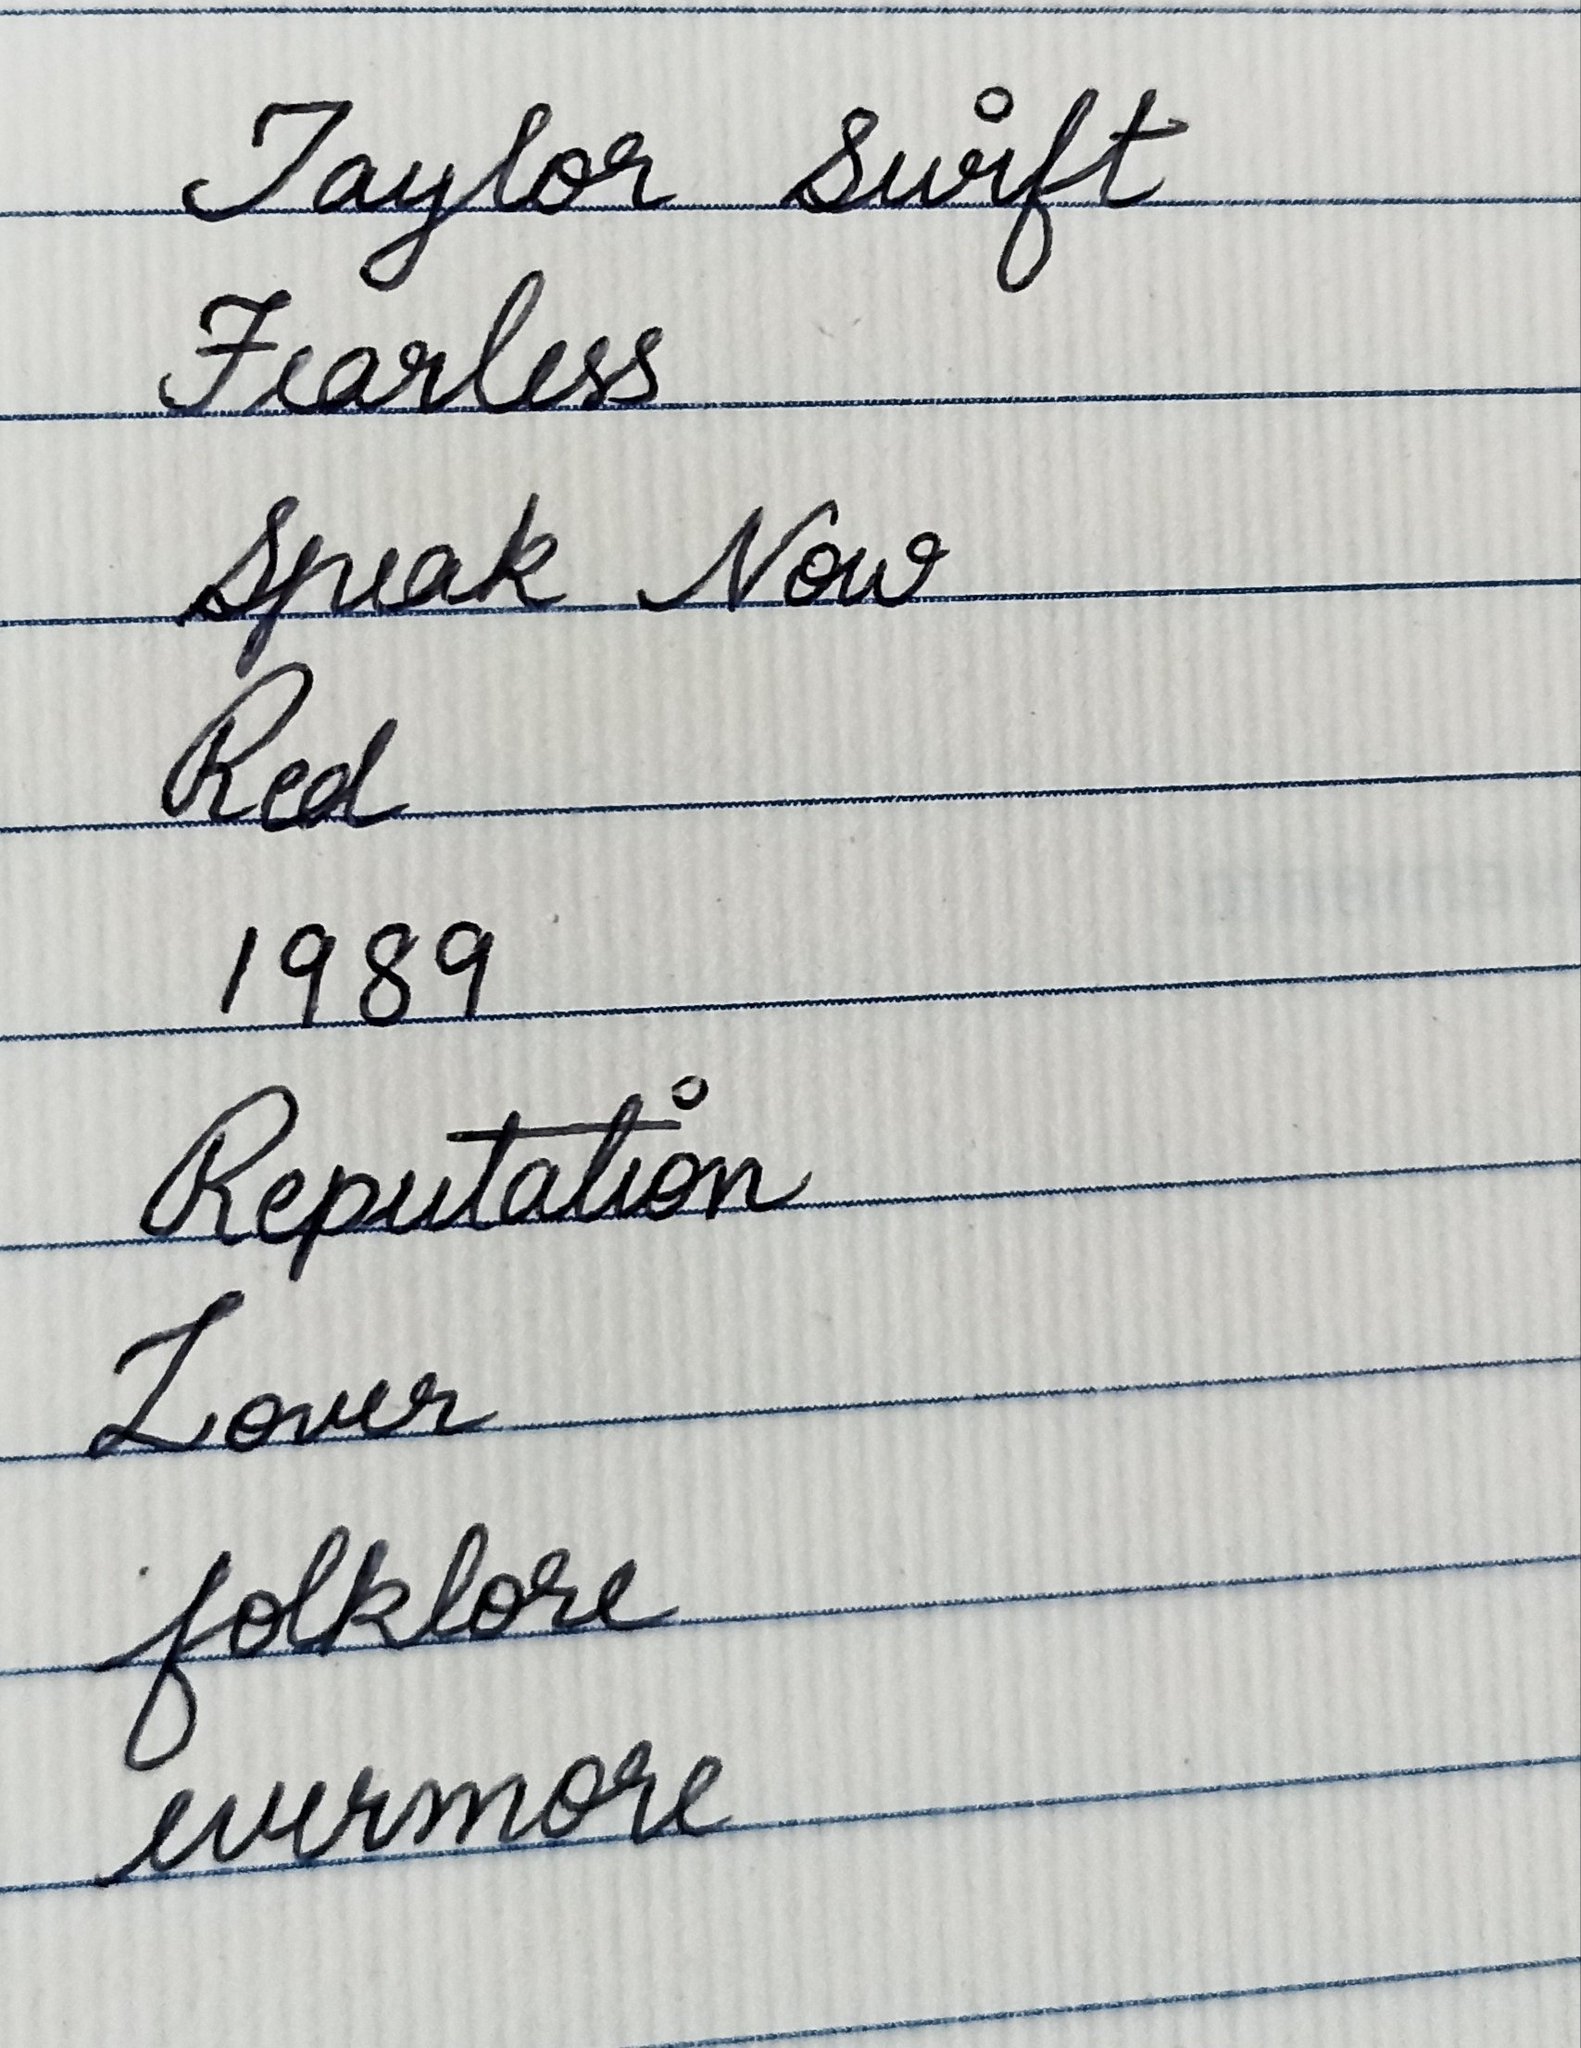 Taylor Swift
Fearless
Speak Now
Red
1989
Reputation
Lover
folklore
evermore